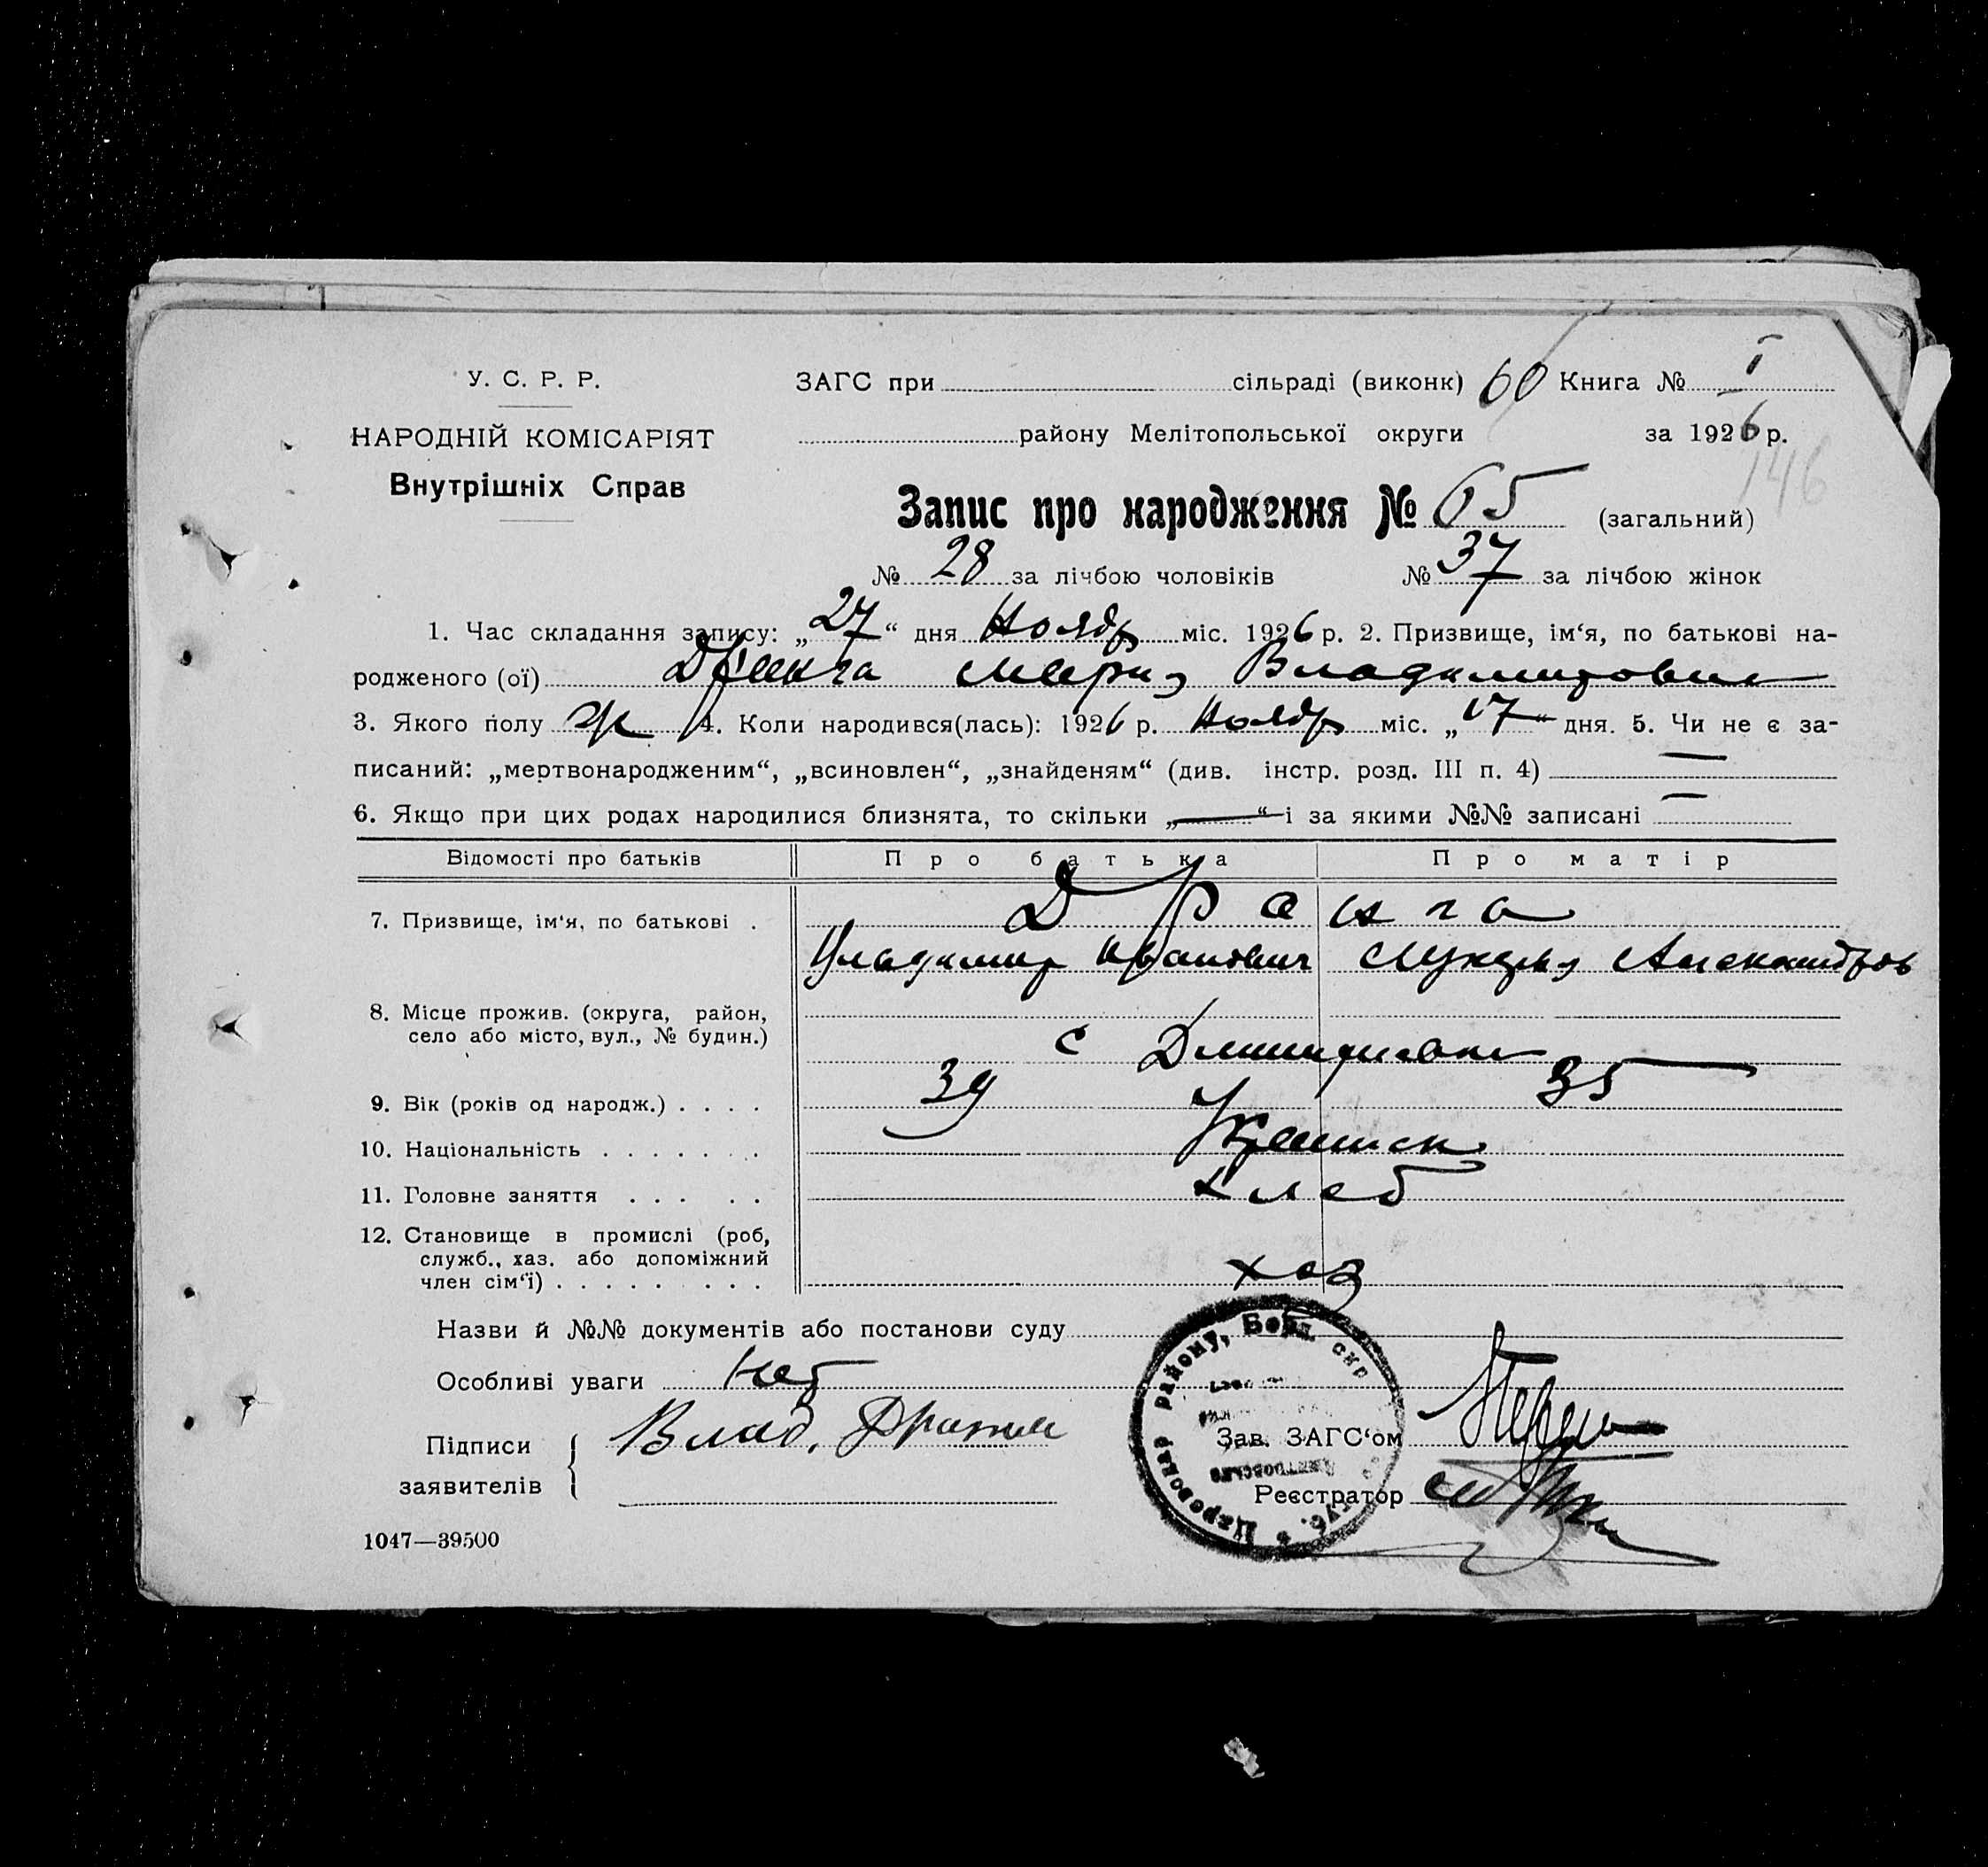 У. С. Р. Р.
ЗАГС при сільраді (виконк) 60 Книга № I
НАРОДНІЙ КОМІСАРІЯТ
району Мелітопольської округи за 1926 р.
146
Внутрішніх Справ
Запис про народження № 65 (загальний)
№ 28 за лічбою чоловіків № 37 за лічбою жінок
1. Час складання запису: „27“ дня Ноябр міс. 1926 р. 2. Призвище, ім‘я, по батькові на-
родженого (ої) Дранга Мария Владимировна
3. Якого полу ж 4. Коли народився(лась): 1926 р. Ноябр міс. „17“ дня. 5. Чи не є за-
писаний: „мертвонародженим“, „всиновлен“, „знайденям“ (див. інстр. розд. III п. 4) —
6. Якщо при цих родах народилися близнята, то скільки „—“ і за якими №№ записані —
Відомості про батьків Про батька Про матір
7. Призвище, ім‘я, по батькові . Дранга
Владимир Иванович Александров
8. Місце прожив. (округа, район,
село або місто, вул., № будин.) с
9. Вік (років од народж.) . . . . 39 35
10. Національність . . . . . . .
11. Головне заняття . . . . . хлеб
12. Становище в промислі (роб,
служб., хаз. або допоміжний
член сім‘ї) . . . . . . . . . хоз
Назви й №№ документів або постанови суду
Особливі уваги Нет
Підписи Влад. Дранга
заявителів
Зав. ЗАГС‘ом
Реєстратор
район
1047—39500